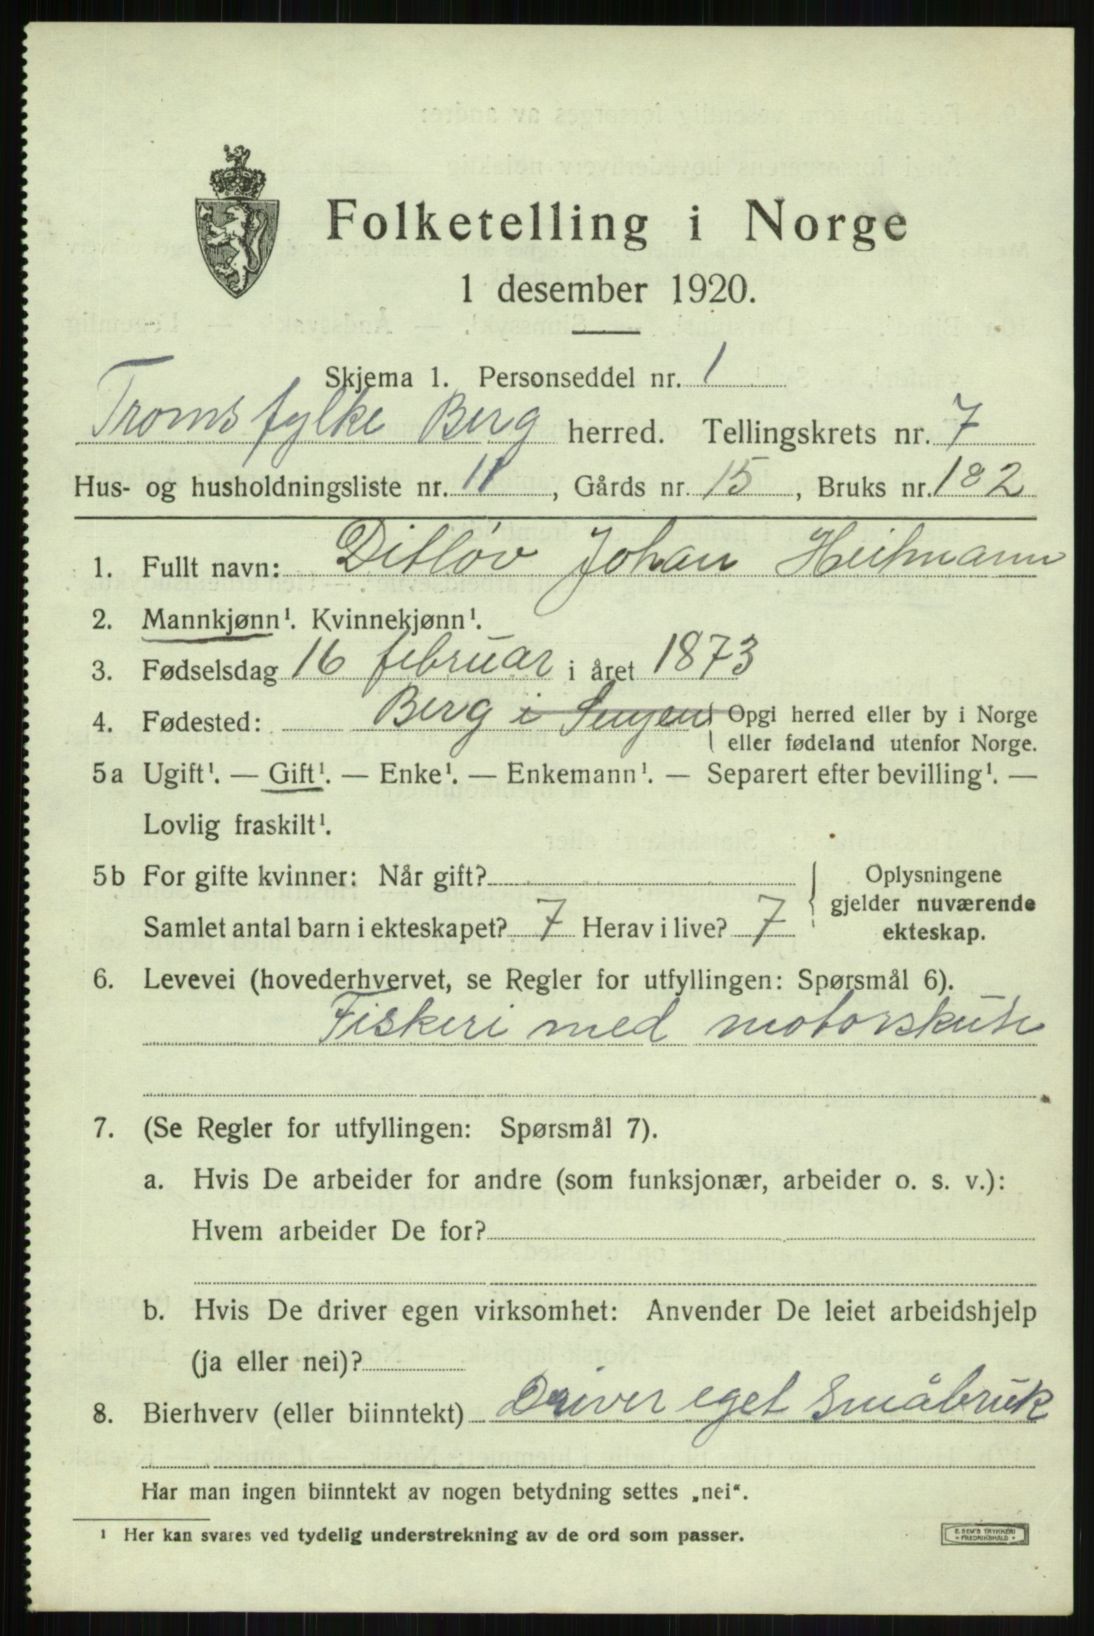 Folketelling i Norge
1 desember 1920.
Skjema 1. Personseddel nr. 1
Troms fylke Berg herred. Tellingskrets nr. 7
Hus- og husholdningsliste nr. 11, Gårds nr. 15, Bruks nr. 182
1. Fullt navn: Ditløv Johan Heitmann
2. Mannkjønn¹. Kvinnekjønn¹.
3. Fødselsdag 16 februar i året 1873
4. Fødested: Berg i Senjen Opgi herred eller by i Norge
eller fødeland utenfor Norge.
5a Ugift¹. — Gift¹. — Enke¹. — Enkemann¹. — Separert efter bevilling¹. —
Lovlig fraskilt¹.
5b For gifte kvinner: Når gift?
Samlet antal barn i ekteskapet? 7 Herav i live? 7
Oplysningene
gjelder nuværende
ekteskap.
6. Levevei (hovederhvervet, se Regler for utfyllingen: Spørsmål 6).
Fiskeri med motorskute
7. (Se Regler for utfyllingen: Spørsmål 7).
a. Hvis De arbeider for andre (som funksjonær, arbeider o. s. v.):
Hvem arbeider De for?
b. Hvis De driver egen virksomhet: Anvender De leiet arbeidshjelp
(ja eller nei)?
8. Bierhverv (eller biinntekt) Driver eget Småbruk
Har man ingen biinntekt av nogen betydning settes „nei“.
¹ Her kan svares ved tydelig understrekning av de ord som passer.
E. SEM'S TRYKKERI
- FREDRIKSHALD -